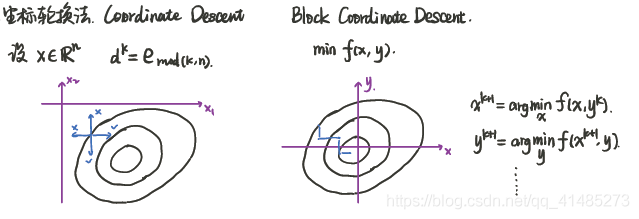 坐标轮换法. Coordinate Descent
设 x∈ℝⁿ  dᵏ=e_mod(k,n).
x₂
x₁
x
x
✓
✓
Block Coordinate Descent.
min f(x,y).
y
x
xᵏ⁺¹=argmin_x f(x,yᵏ).
yᵏ⁺¹=argmin_y f(xᵏ⁺¹,y).
⋮
https://blog.csdn.net/qq_41485273